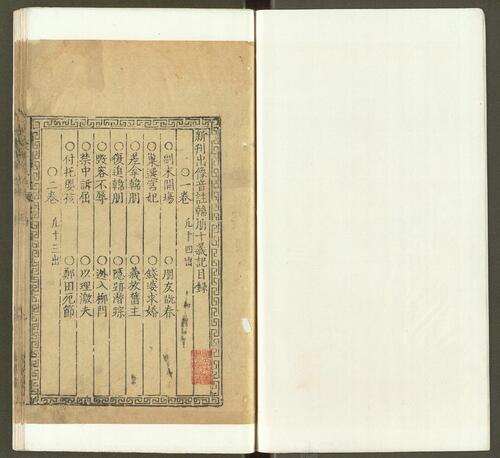 新刊出像音註韓朋十義記目錄
○一卷 凡十四出
○副末開場 ○朋友說春
○巢選宮妃 ○錢婆求婚
○差拿韓朋 ○義放舊主
○復追韓朋 ○隱跡潛踪
○毀容不辱 ○迯入柳門
○禁中訴屈 ○以理激夫
○付托嬰孩 ○鄭田死節
○二卷 凡十三出